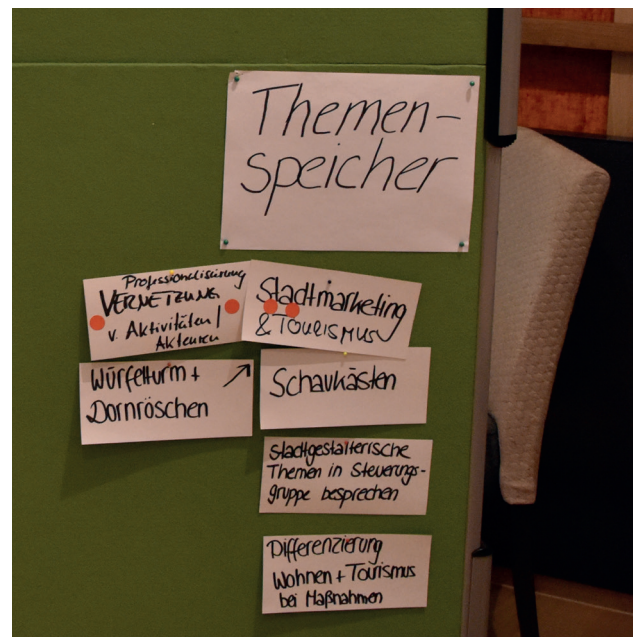 Themen-
speicher
Professionalisierung
VERNETZUNG
v. Aktivitäten/
Akteuren
Stadtmarketing
& TOURISMUS
Würfelturm +
Dornröschen
Schaukästen
Stadtgestalterische
Themen in Steuerungs-
gruppe besprechen
Differenzierung
Wohnen + Tourismus
bei Maßnahmen